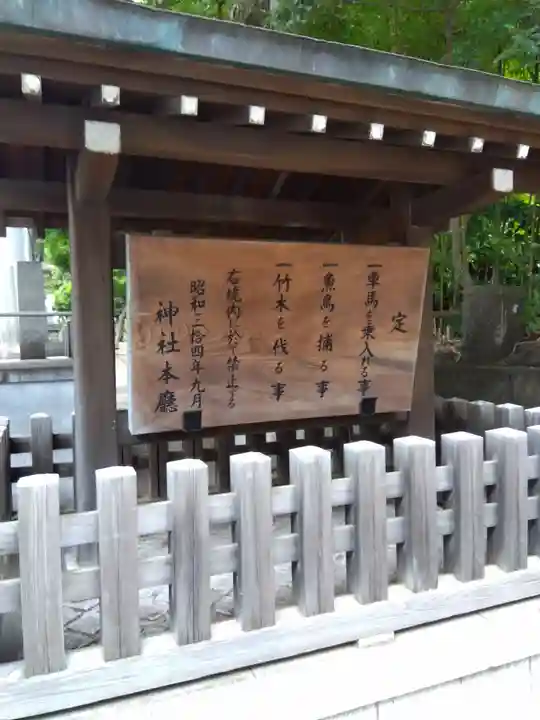 定
一車馬を乗入れる事
一魚鳥を捕る事
一竹木を伐る事
右境内に於て禁止する
昭和二拾四年九月
神社本廳